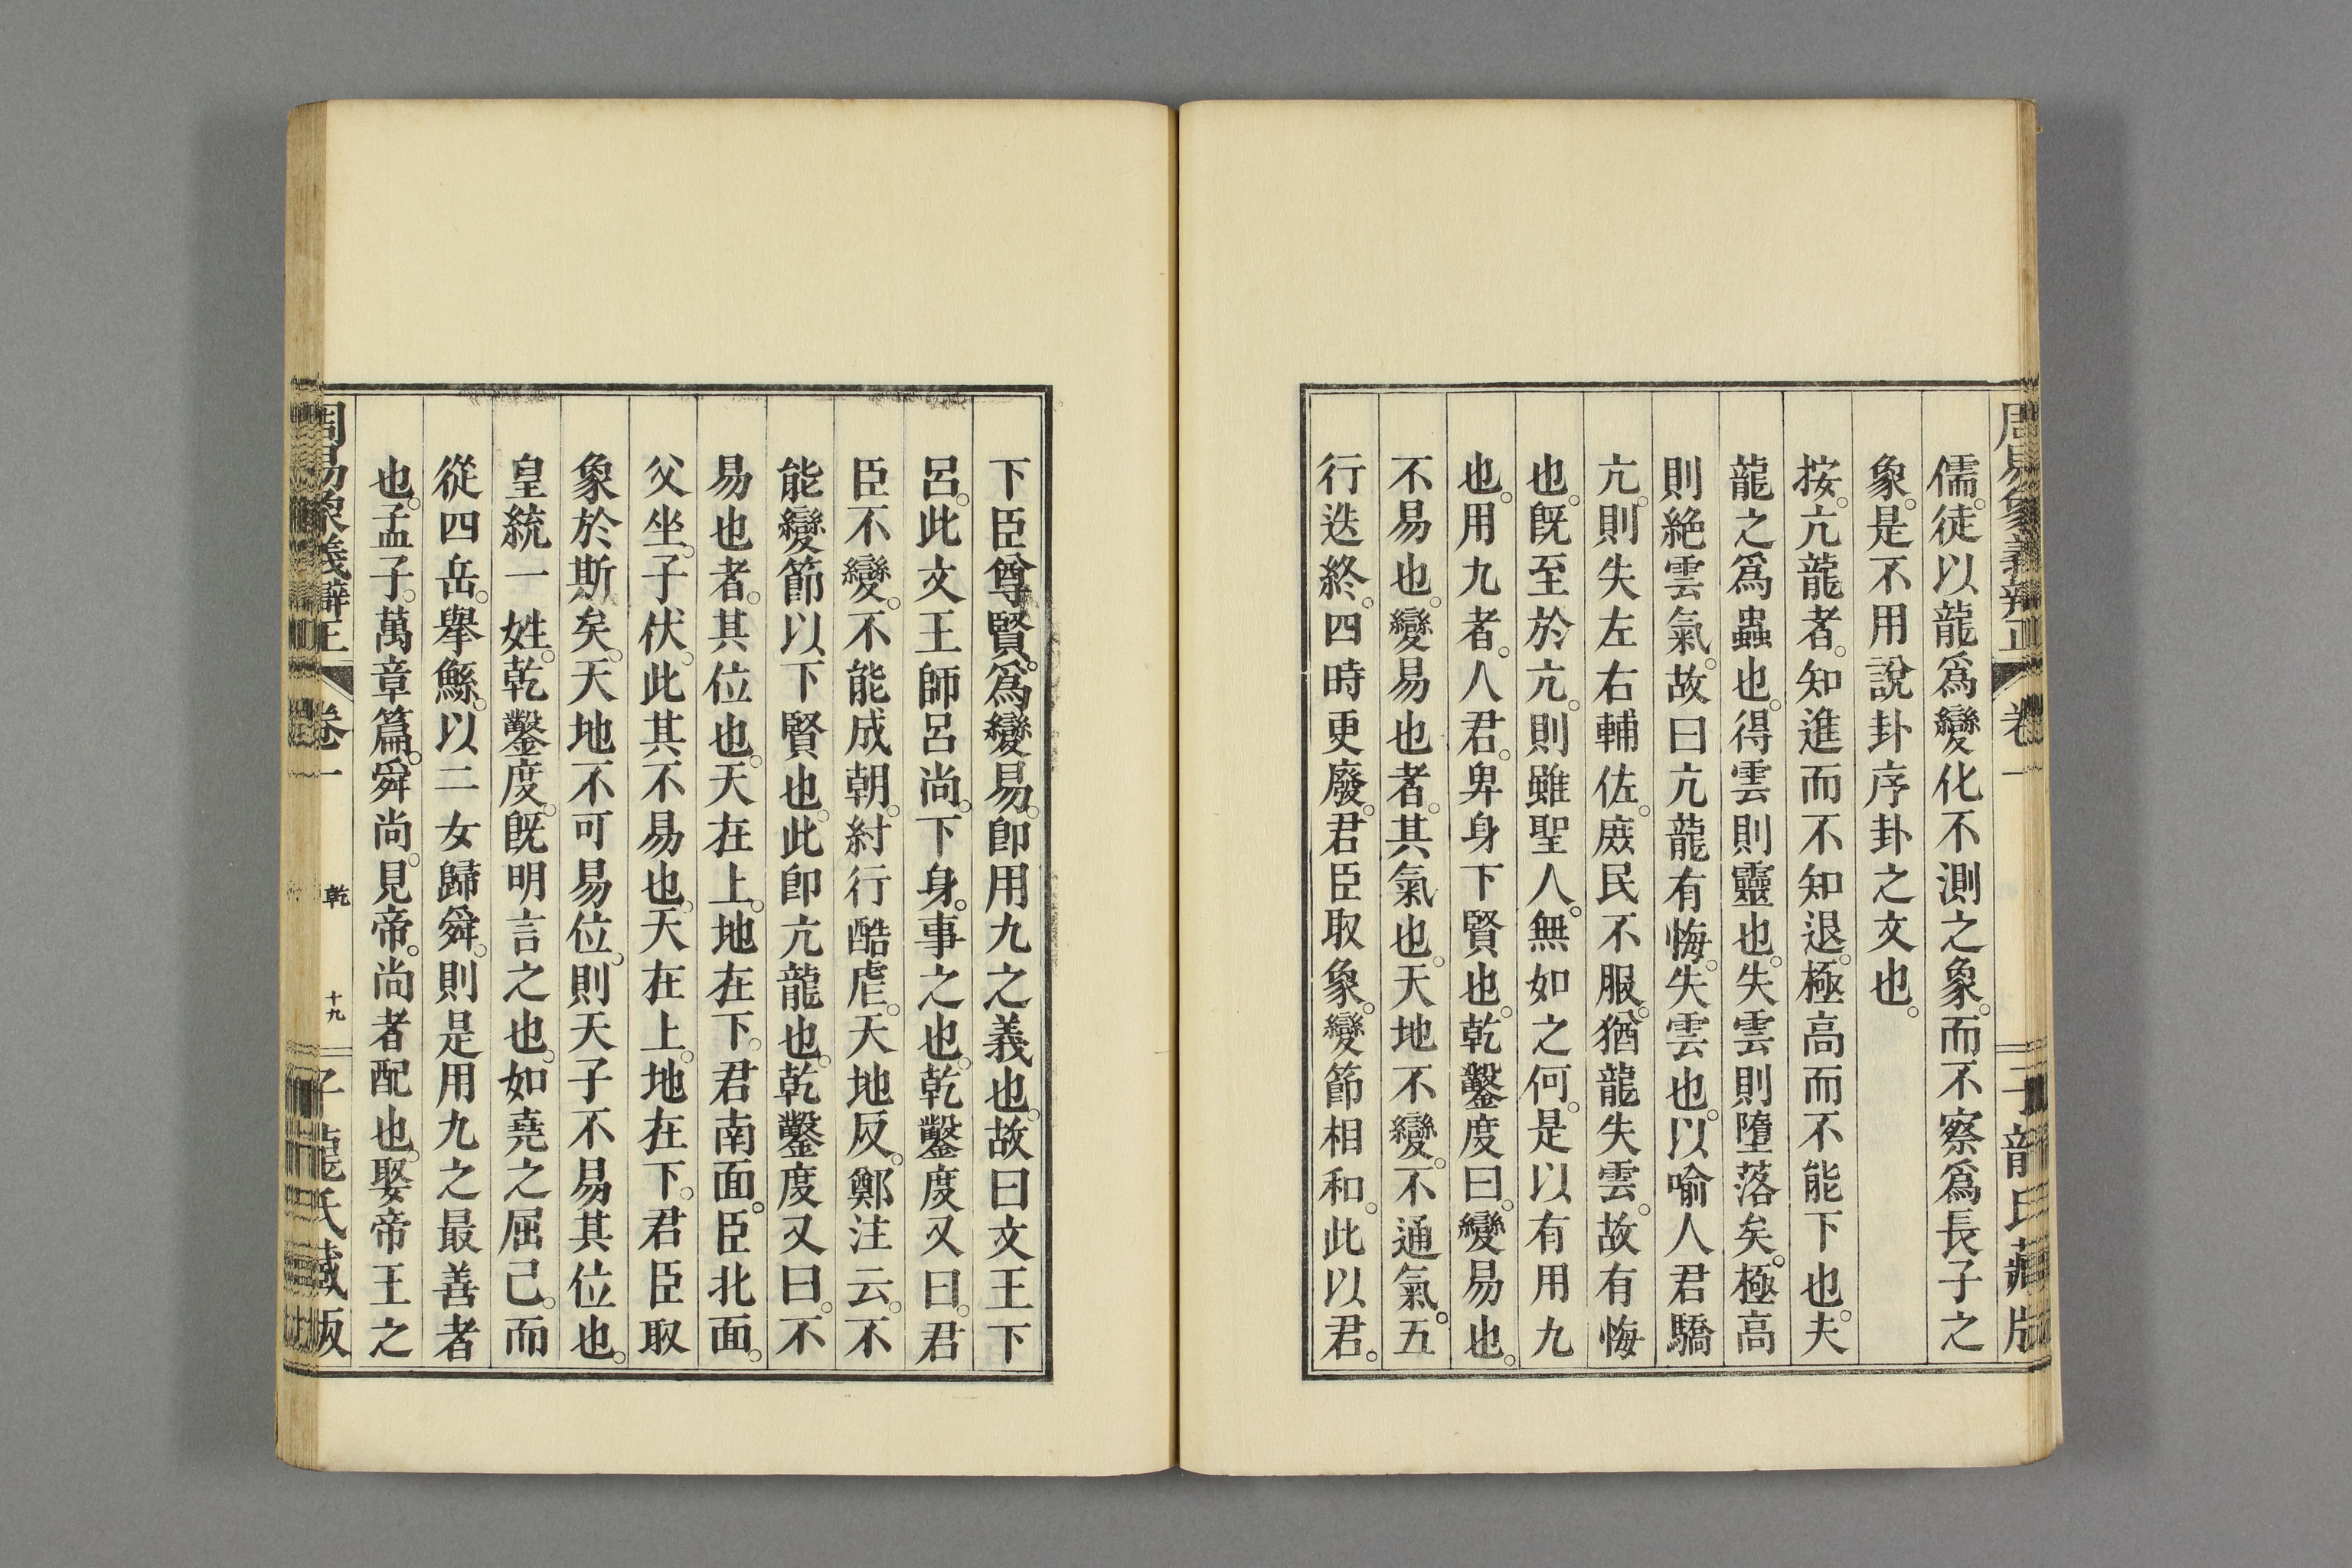 周易象義辯正 卷一 子龍氏藏版
儒。徒以龍爲變化不測之象。而不察爲長子之
象。是不用說卦序卦之文也。
按。亢龍者。知進而不知退。極高而不能下也。夫
龍之爲蟲也。得雲則靈也。失雲則墮落矣。極高
則絶雲氣。故曰亢龍有悔。失雲也。以喻人君驕
亢。則失左右輔佐。庻民不服。猶龍失雲。故有悔
也。旣至於亢。則雖聖人。無如之何。是以有用九
也。用九者。人君。卑身下賢也。乾鑿度曰。變易也。
不易也。變易也者。其氣也。天地不變。不通氣。五
行迭終。四時更廢。君臣取象。變節相和。此以君。
下臣尊賢。爲變易。卽用九之義也。故曰文王下
呂。此文王師呂尚。下身。事之也。乾鑿度又曰。君
臣不變。不能成朝。紂行酷虐。天地反。鄭注云。不
能變節以下賢也。此卽亢龍也。乾鑿度又曰。不
易也者。其位也。天在上。地在下。君南面。臣北面。
父坐。子伏。此其不易也。天在上。地在下。君臣取
象於斯矣。天地不可易位。則天子不易其位也。
皇統一姓。乾鑿度。旣明言之也。如堯之屈己。而
從四岳。舉鯀。以二女歸舜。則是用九之最善者
也。孟子。萬章篇。舜尚。見帝。尚者配也。娶帝王之
周易象義辯正 卷一 乾 十九 子龍氏藏版